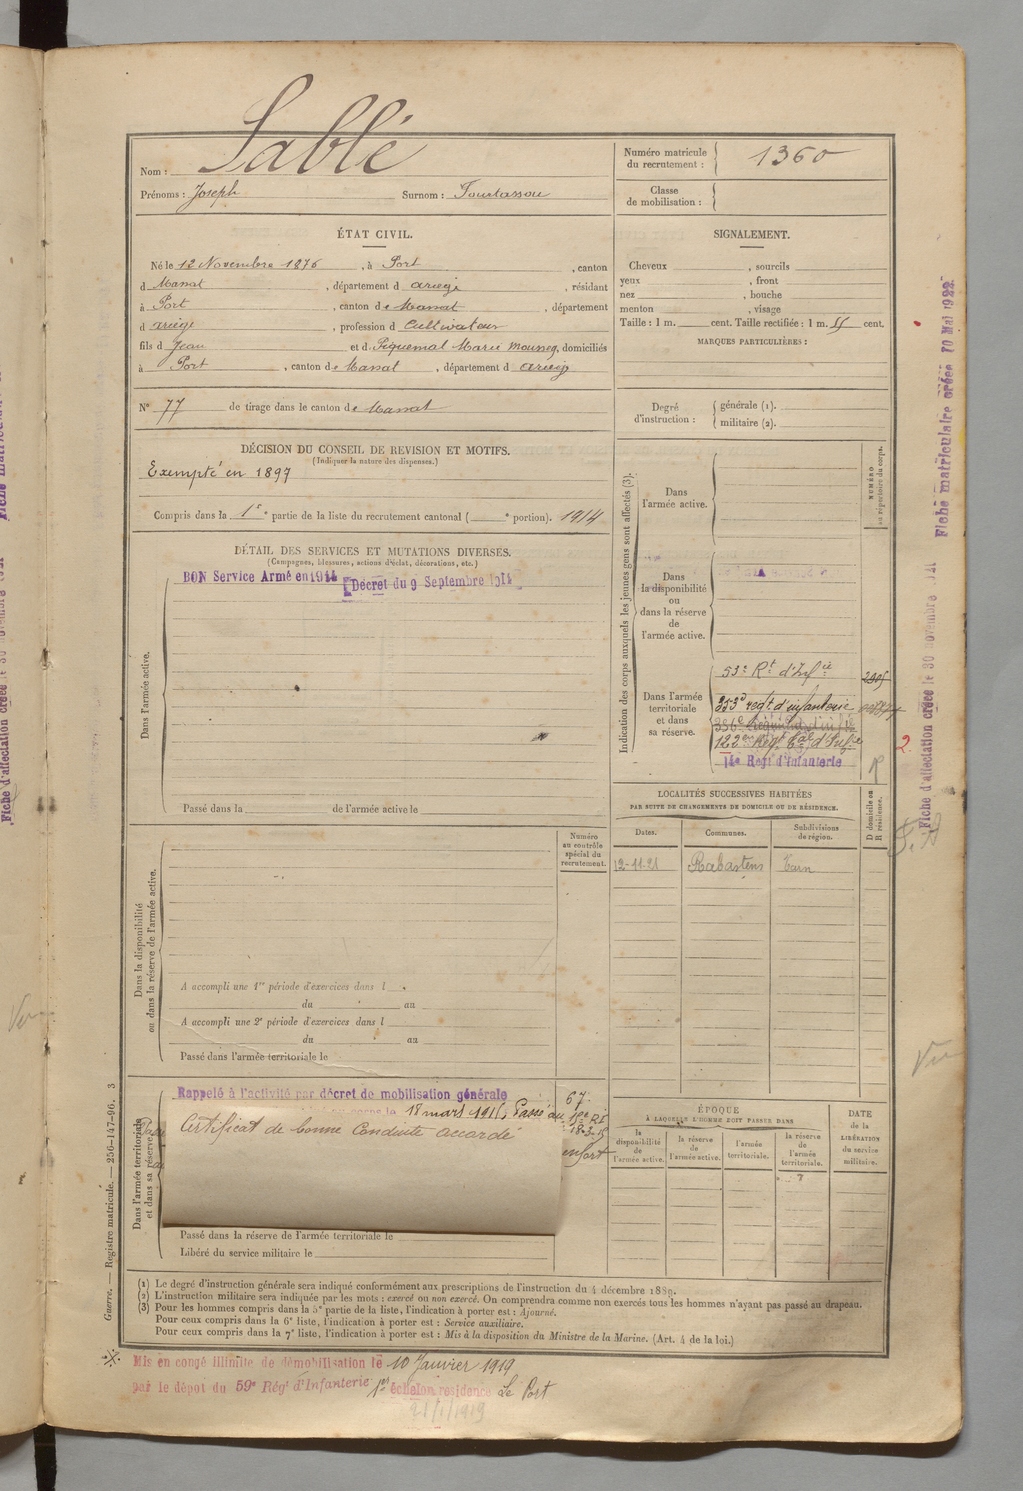 Nom : Sablé
Prénoms : Joseph Surnom : Tourtassou
Numéro matricule du recrutement : 1360
Classe de mobilisation :
ÉTAT CIVIL.
Né le 12 Novembre 1876, à Port, canton
d Massat, département d ariège, résidant
à Port, canton de Massat, département
d ariège, profession d Cultivateur
fils d Jean et d Piquemal Marie, domiciliés
à Port, canton de Massat, département d ariège
N° 77 de tirage dans le canton de Massat
SIGNALEMENT.
Cheveux , sourcils
yeux , front
nez , bouche
menton , visage
Taille : 1 m. cent. Taille rectifiée : 1 m. 55 cent.
MARQUES PARTICULIÈRES :
Degré d'instruction : générale (1).
militaire (2).
DÉCISION DU CONSEIL DE REVISION ET MOTIFS.
(Indiquer la nature des dispenses.)
Exempté en 1897
Compris dans la 1e partie de la liste du recrutement cantonal ( e portion). 1914
DÉTAIL DES SERVICES ET MUTATIONS DIVERSES.
(Campagnes, blessures, actions d'éclat, décorations, etc.)
BON Service Armé en 1914
Décret du 9 Septembre 1914
Dans l'armée active.
Passé dans la de l'armée active le
Indication des corps auxquels les jeunes gens sont affectés (3).
NUMÉRO au répertoire du corps.
Dans l'armée active.
Dans la disponibilité ou dans la réserve de l'armée active.
Dans l'armée territoriale et dans sa réserve.
53e Rt d'Infie
353e regt d'infanterie
122e Regt d'Infie
14e Regt d'Infanterie
LOCALITÉS SUCCESSIVES HABITÉES
PAR SUITE DE CHANGEMENTS DE DOMICILE OU DE RÉSIDENCE.
D domicile ou R résidence.
R
Dates. Communes. Subdivisions de région.
12-11-21 Rabastens Tarn
Numéro au contrôle spécial du recrutement.
Dans la disponibilité ou dans la réserve de l'armée active.
A accompli une 1re période d'exercices dans l
du au
A accompli une 2e période d'exercices dans l
du au
Passé dans l'armée territoriale le
Dans l'armée territoriale et dans sa réserve.
Rappelé à l'activité par décret de mobilisation générale
18 mars 1915 Passé au
67
Certificat de bonne Conduite accordé
Passé dans la réserve de l'armée territoriale le
Libéré du service militaire le
ÉPOQUE
À LAQUELLE L'HOMME DOIT PASSER DANS
la disponibilité de l'armée active. la réserve de l'armée active. l'armée territoriale. la réserve de l'armée territoriale.
DATE de la LIBÉRATION du service militaire.
(1) Le degré d'instruction générale sera indiqué conformément aux prescriptions de l'instruction du 4 décembre 1889.
(2) L'instruction militaire sera indiquée par les mots : exercé ou non exercé. On comprendra comme non exercés tous les hommes n'ayant pas passé au drapeau.
(3) Pour les hommes compris dans la 5e partie de la liste, l'indication à porter est : Ajourné.
Pour ceux compris dans la 6e liste, l'indication à porter est : Service auxiliaire.
Pour ceux compris dans la 7e liste, l'indication à porter est : Mis à la disposition du Ministre de la Marine. (Art. 4 de la loi.)
Mis en congé illimité de démobilisation le 10 Janvier 1919
par le dépôt du 59e Régt d'Infanterie 1er échelon residence Le Port
21/1/1919
Guerre. — Registre matricule. — 256-147-96. 3
Fiche d'affectation créée le 30 novembre
Fiche matriculaire créée 10 Mai 1922
2
Vu